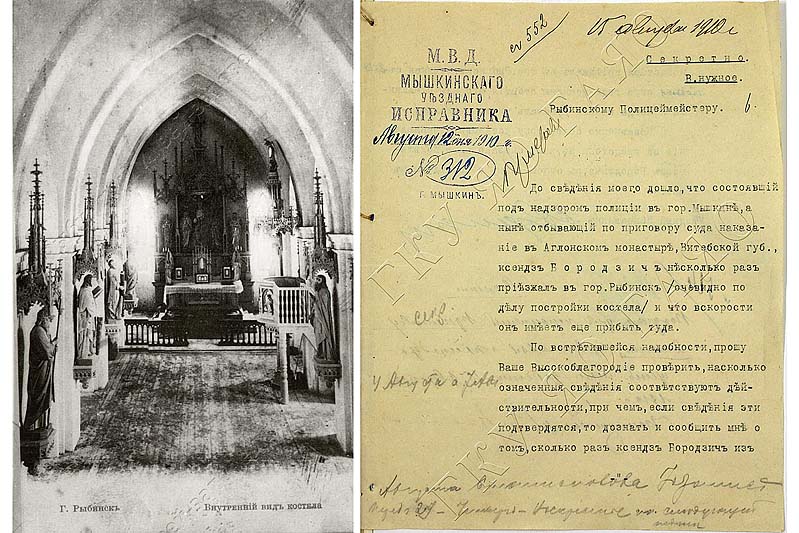 Г. Рыбинскъ Внутренній видъ костела
№ 552
15 августа 1910 г.
Секретно.
В.нужное.
М.В.Д.
МЫШКИНСКАГО
УѢЗДНАГО
ИСПРАВНИКА
Августа 12 дня 1910 г.
№ 312
Г. МЫШКИНЪ.
Рыбинскому Полицеймейстеру. 6
До свѣдѣнія моего дошло,что состоявшій
подъ надзоромъ полиціи въ гор.Мышкинѣ,а
нынѣ отбывающій по приговору суда наказа-
ніе въ Аглонскомъ монастырѣ,Витебской губ.,
ксендзъ Бородзичъ нѣсколько разъ
пріѣзжалъ въ гор.Рыбинскъ /очевидно по
дѣлу постройки костела/ и что вскорости
онъ имѣетъ еще прибыть туда.
По встрѣтившейся надобности,прошу
Ваше Высокоблагородіе провѣрить,насколько
означенныя свѣдѣнія соотвѣтствуютъ дѣй-
ствительности,при чемъ,если свѣдѣнія эти
подтвердятся,то дознать и сообщить мнѣ о
томъ,сколько разъ ксендзъ Бородзичъ изъ
Августа
ГКУ ЯО ГАЯО